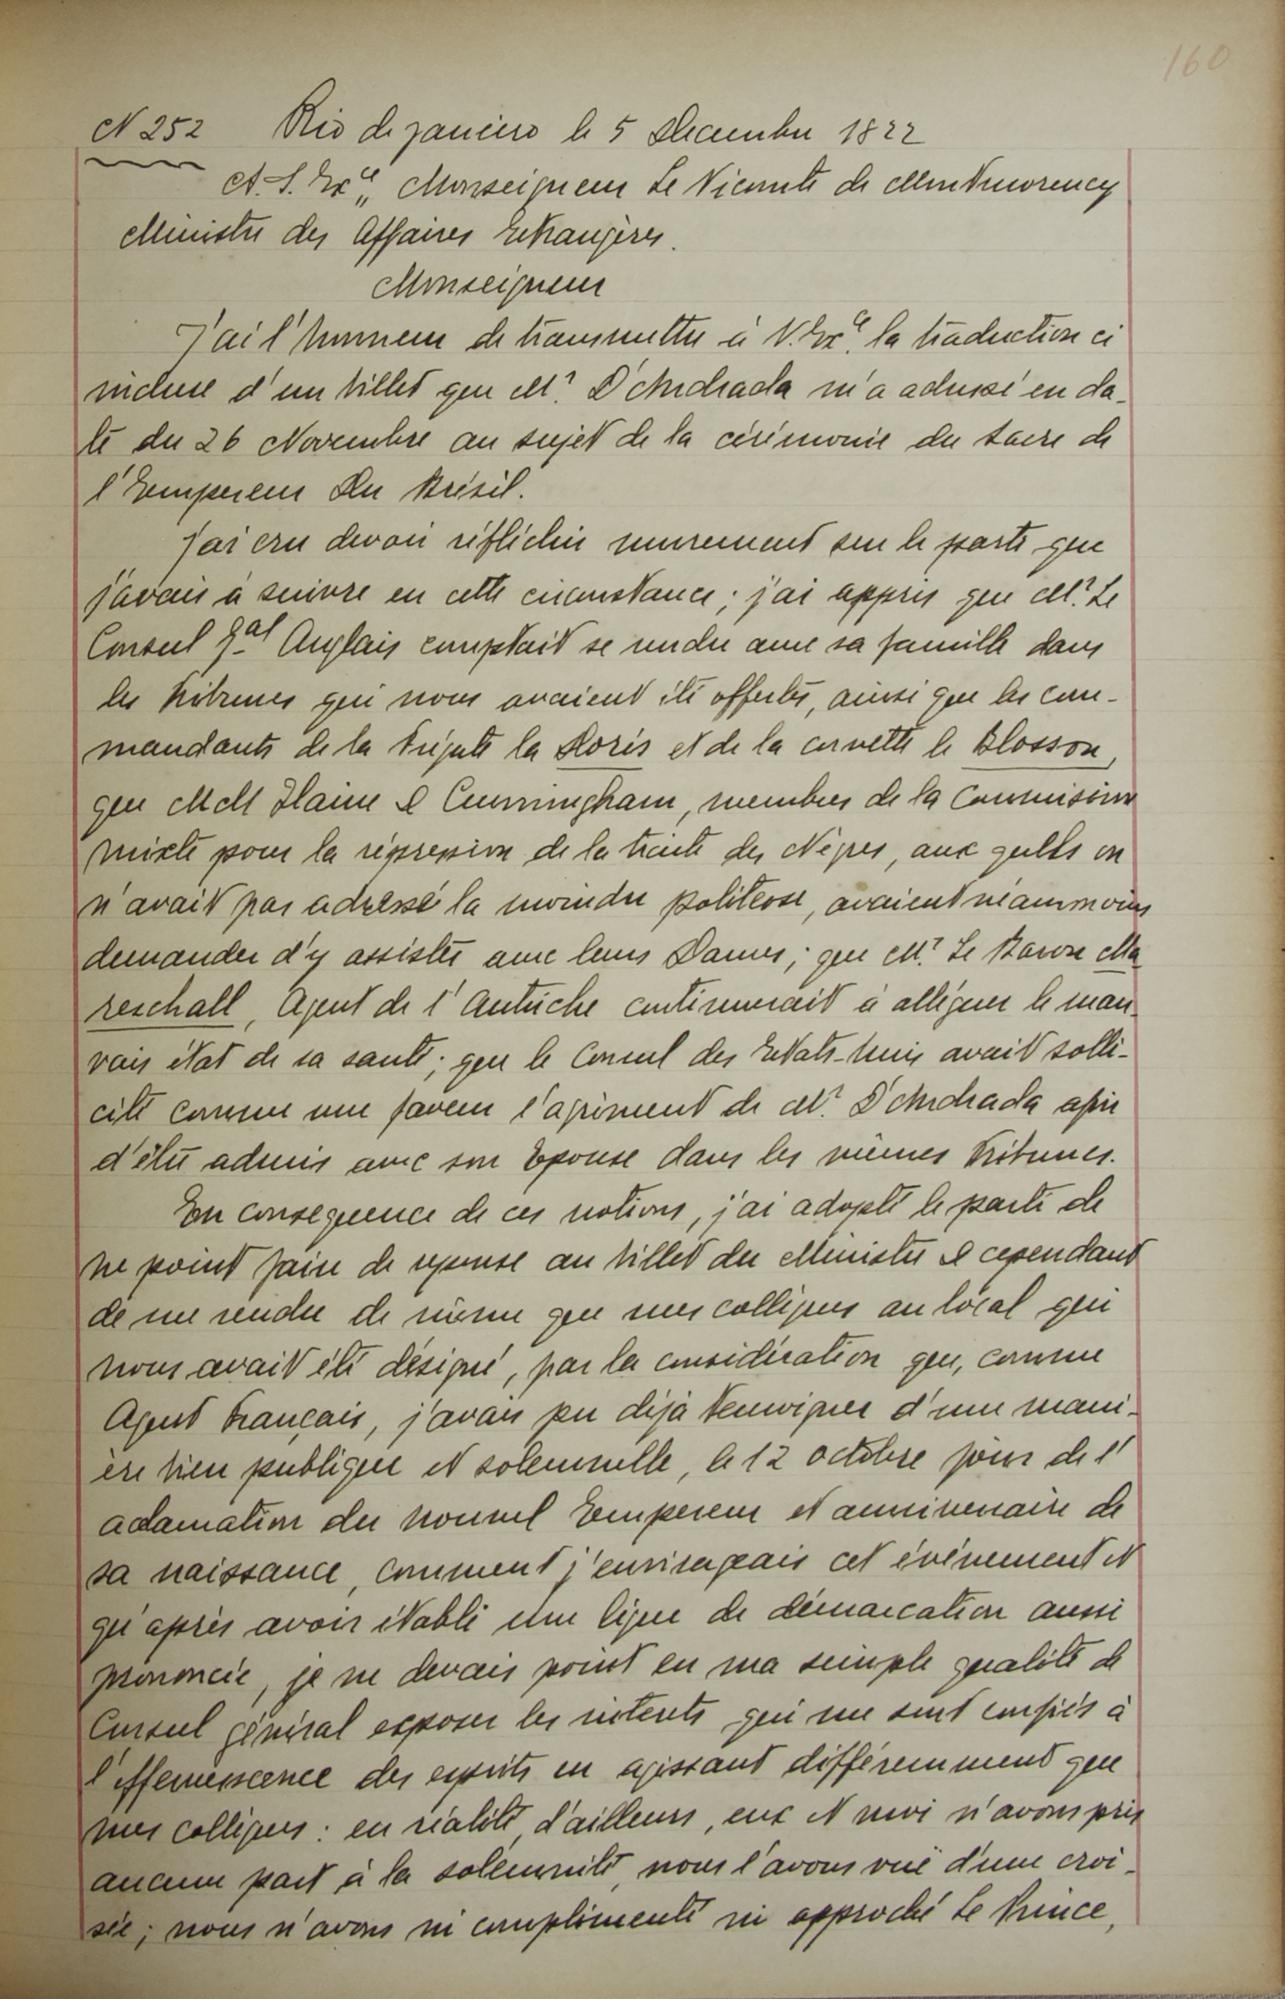 160
N 252 Rio de janeiro le 5 Decembre 1822
A. S. Exce,, Monseigneur Le Vicomte de Montmorency
Ministre des Affaires Etrangères.
Monseigneur
J'ai l'honneur de transmettre à V. Exce. la traduction ci
incluse d'un billet que Mr D'Andrada m'a adressé en da-
te du 26 Novembre au sujet de la cérémonie du Sacre de
l'Empereur Du Brésil.
J'ai cru devoir réfléchir murement sur le parti que
j'avais à suivre en cette circonstance; j'ai appris que Mr. Le
Consul Gal Anglais comptait se rendre avec sa famille dans
les tribunes qui nous avaient été offertes, ainsi que les com-
mandants de la frégate la Doris et de la corvette le Blosson,
que MM Haine & Cunningham, membres de la Commission
mixte pour la répression de la traite des Nègres, aux quells on
n'avait pas adressé la moindre politesse, avaient néammoins
demander d'y assister avec leurs Dames; que Mr. Le Baron Ma-
reschall, Agent de l'Autriche continuerait à alléguer le mau-
vais état de sa santé; que le Consul des Etats-Unis avait solli-
cité comme une faveur l'agrément de Mr. D'Andrada afin
d'être admis avec son Epouse dans les mêmes tribunes.
En consequence de ces notions, j'ai adopté le parti de
ne point faire de reponse au billet du Ministre & cependant
de me rendre de même que mes collègues au local qui
nous avait été désigné, par la considération que, comme
Agent Français, j'avais pu déjà temoigner d'une mani-
ère bien publique et solemnelle, le 12 octobre jour de l'
aclamation du nouvel Empereur et anniversaire de
sa naissance, comment j'envisageais cet événement et
qu'après avoir établi une ligne de démarcation aussi
prononcée, je ne devais point en ma simple qualité de
Consul général exposer les intérets qui me sont confiés à
l'effervescence des esprits en agissant différemment que
mes collègues: en réalité, d'ailleurs, eux et moi n'avons pris
aucune part à la solemnité, nous l'avons vuë d'une croi-
sée; nous n'avons ni complimenté ni approché Le Prince,